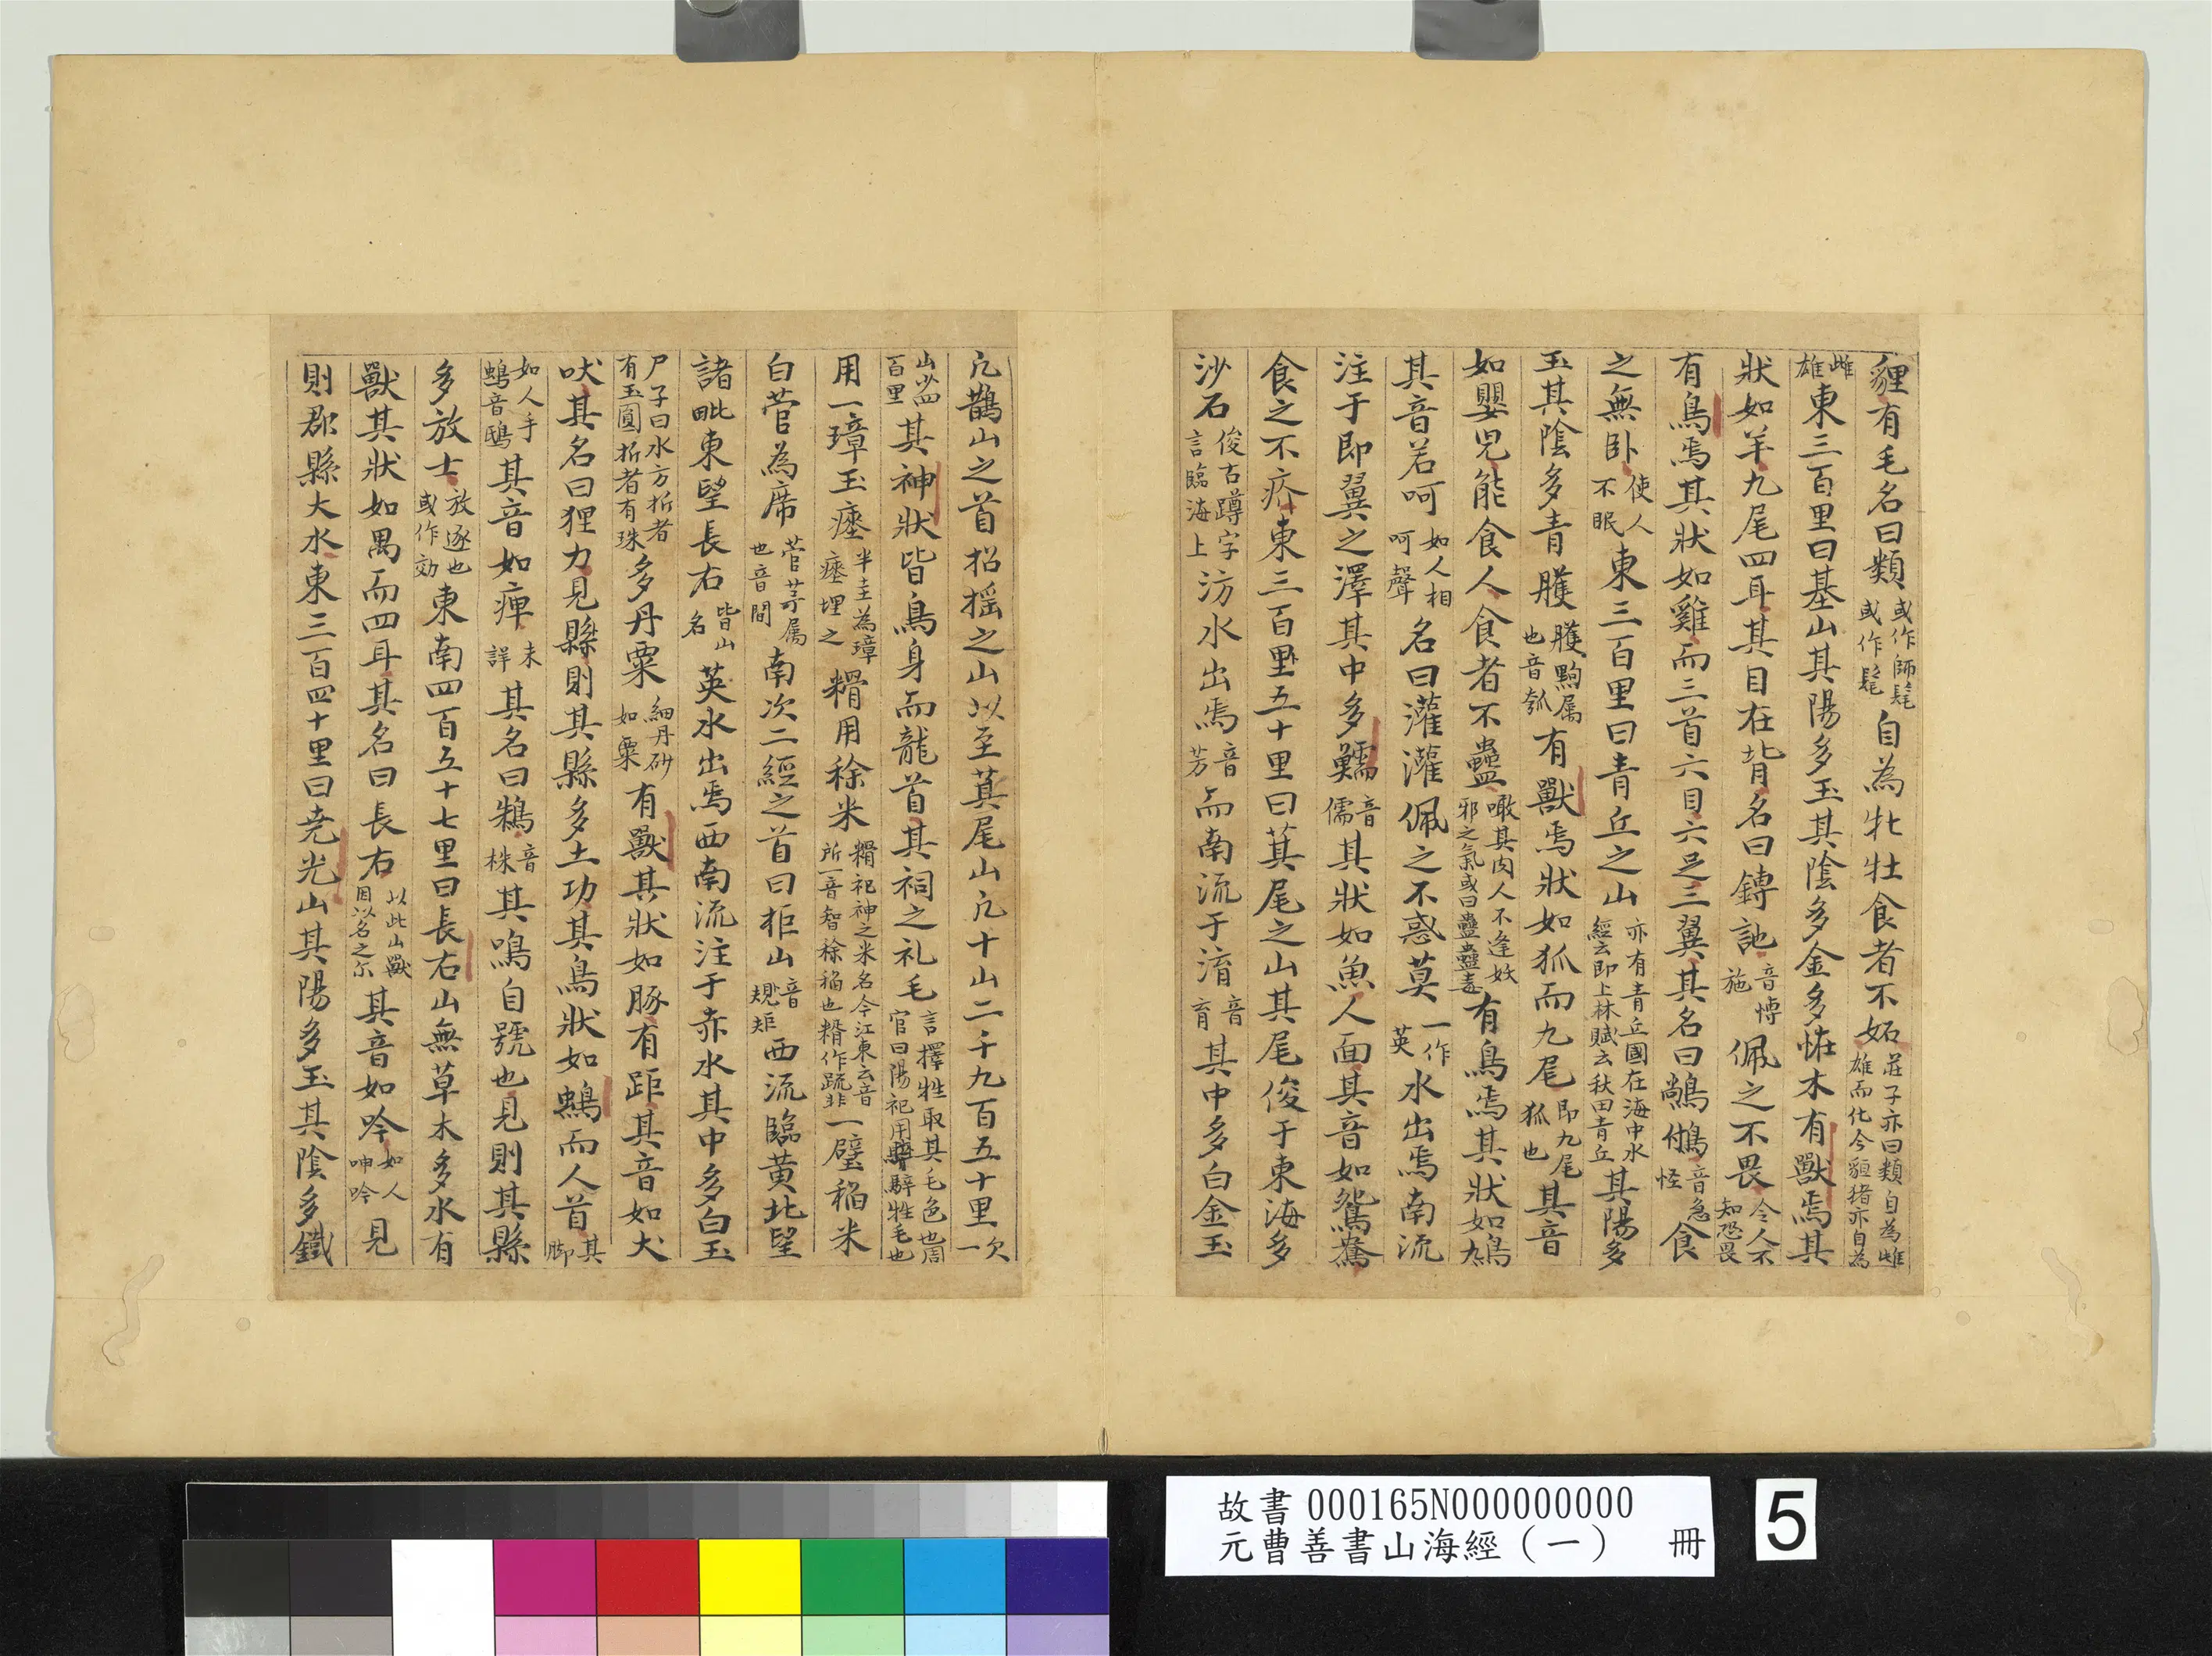 貍有毛名曰類或作師髦或作髦自為牝牡食者不妬莊子亦曰類自為雌雄而化今貆猪亦自為
雌雄東三百里曰基山其陽多玉其陰多金多恠木有獸焉其
狀如羊九尾四耳其目在背名曰𩣡訑音愽施佩之不畏令人不知恐畏
有鳥焉其狀如雞而三首六目六足三翼其名曰鵸鵂音急怪食
之無卧使人不眠東三百里曰青丘之山亦有青丘國在海中水經云即上林賦云秋田青丘其陽多
玉其陰多青雘雘黝属也音瓠有獸焉狀如狐而九尾即九尾狐也其音
如嬰児能食人食者不蠱噉其肉人不逢妖邪之氣或曰蠱蠱毒有鳥焉其狀如鳩
其音若呵如人相呵聲名曰灌灌佩之不惑莫一作英水出焉南流
注于即翼之澤其中多鱬音儒其狀如魚人面其音如鴛鴦
食之不疥東三百里五十里曰箕尾之山其尾俊于東海多
沙石俊古蹲字言臨海上汸水出焉音芳而南流于淯音育其中多白金玉
凢鵲山之首招摇之山以至萁尾山凢十山二千九百五十里一次
山㕣四百里其神狀皆鳥身而龍首其祠之礼毛言擇牲取其毛色也周官曰陽祀用騂牲毛也
用一璋玉瘞半圭為璋瘞埋之糈用稌米糈祀神之米名今江東云音所一音智稌稲也糈作疏非一璧稲米
白菅為席菅茅属也音間南次二經之首曰柜山音矩西流臨黄北望
諸毗東望長右皆山名英水出焉西南流注于赤水其中多白玉
尸子曰水方折者有玉圓折者有珠多丹粟細丹砂如粟有獸其狀如豚有距其音如犬
吠其名曰狸力見縣則其縣多土功其鳥狀如鴟而人首其脚
如人手鴟音鴟其音如痺未詳其名曰鴸音株其鳴自號也見則其縣
多放士放逐也或作効東南四百五十七里曰長右山無草木多水有
獸其狀如禺而四耳其名曰長右以此山獸因以名之尓其音如吟如人呻吟見
則郡縣大水東三百四十里曰尭光山其陽多玉其陰多鐵
故書000165N000000000
元曹善書山海經（一） 冊
5